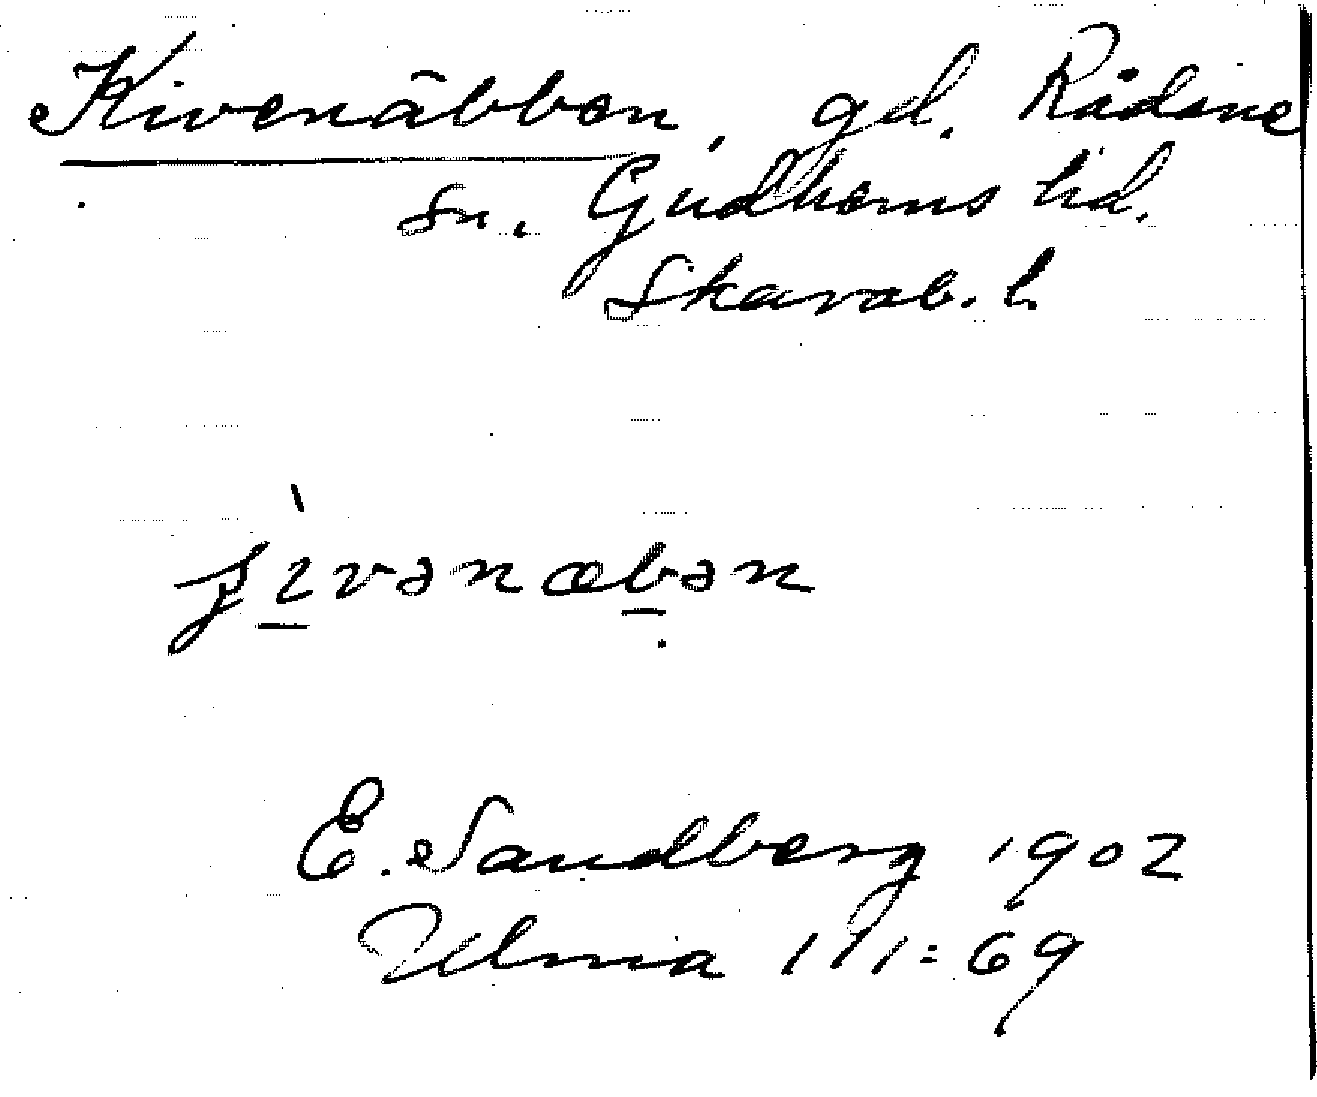 Kivenäbben, gd. Rådene
sn. Gudhems hd.
Skarab. l.
ʃìvənæbən
E. Sandberg 1902
Ulma 111:69